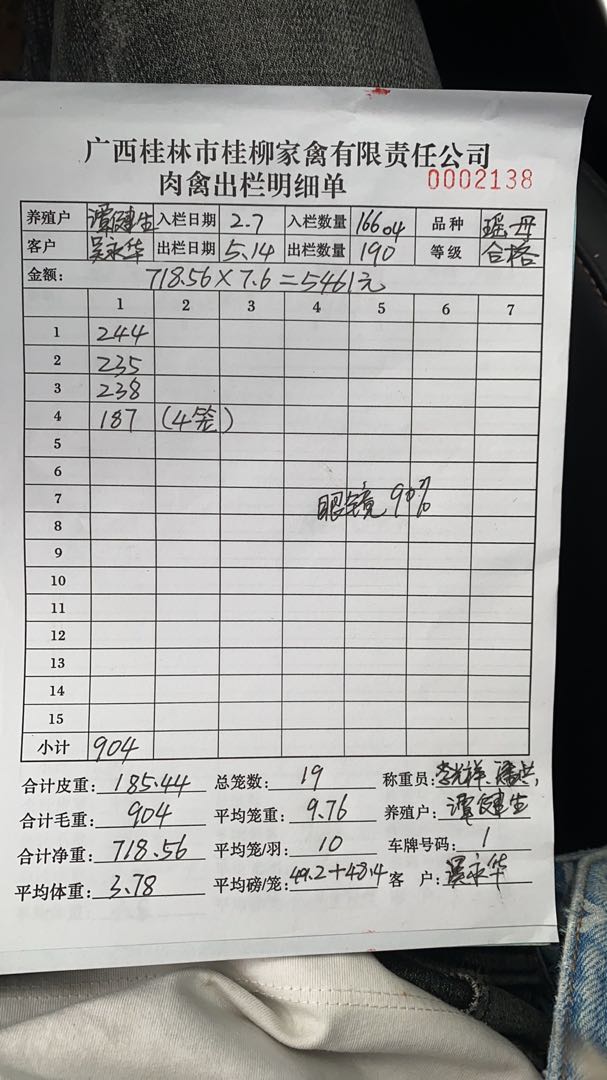 广西桂林市桂柳家禽有限责任公司
肉禽出栏明细单 0002138
养殖户 谭健生 入栏日期 2.7 入栏数量 16604 品种 瑶丹
客户 吴永华 出栏日期 5.14 出栏数量 190 等级 合格
金额: 718.56×7.6=5461元
1 2 3 4 5 6 7
1 244
2 235
3 238
4 187 (4笼)
5
6
7 眼镜 90%
8
9
10
11
12
13
14
15
小计 904
合计皮重: 185.44 总笼数: 19 称重员:
合计毛重: 904 平均笼重: 9.76 养殖户: 谭健生
合计净重: 718.56 平均笼/羽: 10 车牌号码: 1
平均体重: 3.78 平均磅/笼: 49.2+48.4 客 户: 吴永华